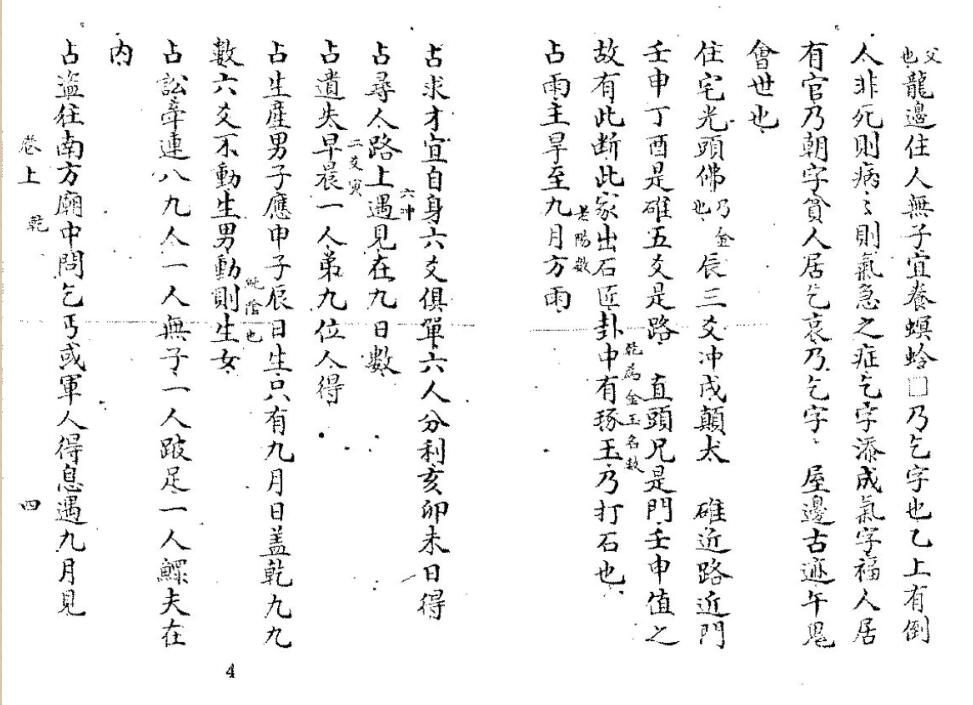 父也龍邊住人無子宜養螟蛉□乃乞字也乙上有倒
人非死則病〻則氣急之症乞字添成氣字福人居
有官乃朝字貧人居乞哀乃乞字 屋邊古迹午鬼
會世也
住宅光頭佛乃金也辰三爻冲戌顛太 碓近路近門
壬申丁酉是碓五爻是路 直頭兄是門壬申值之
故有此断此家出石匠卦中有琢玉乃打石也乾為金玉名数
占雨主旱至九月方雨老陽数
占求才宜自身六爻俱單六人分利亥卯未日得
占尋人路上遇見在九日數六冲
占遺失早晨一人弟九位人得二爻寅
占生產男子應申子辰日生只有九月日盖乾九九
數六爻不動生男動則生女純陰也
占訟牽連八九人一人無子一人跛足一人鰥夫在
內
占盗往南方廟中問乞丐或軍人得息遇九月見
卷上 乾 四
4